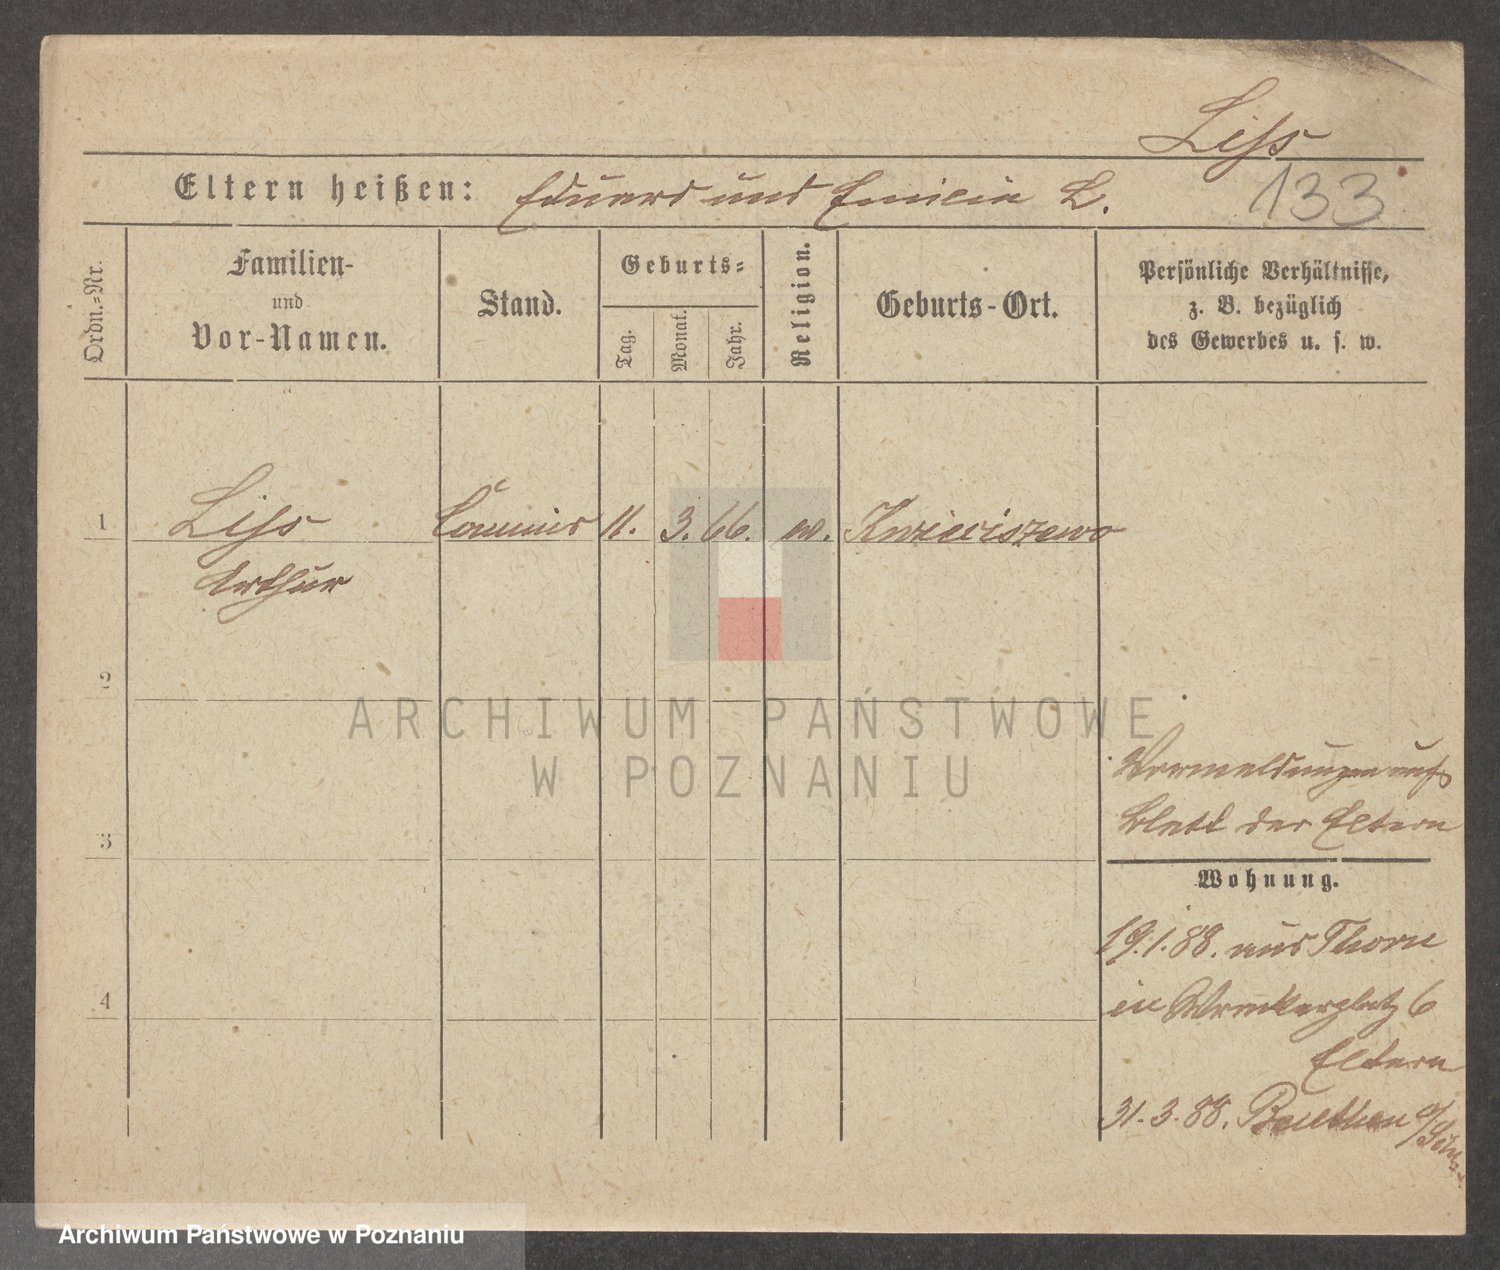 Liss
133
Eltern heißen: Eduard und Emilie L.
Ordn.-Nr.
Familien-
und
Vor-Namen.
Stand.
Geburts-
Tag.
Monat.
Jahr.
Religion.
Geburts-Ort.
Persönliche Verhältnisse,
z. B. bezüglich
des Gewerbes u. s. w.
1 Liss Commis 11. 3. 66. ev. Kwieciszewo
Arthur
2
3
4
Vormeldungen aufs
Blatt der Eltern
Wohnung.
19.1.88. aus Thorn
in 6
Eltern
31.3.88. Beuthen
ARCHIWUM PAŃSTWOWE
W POZNANIU
Archiwum Państwowe w Poznaniu